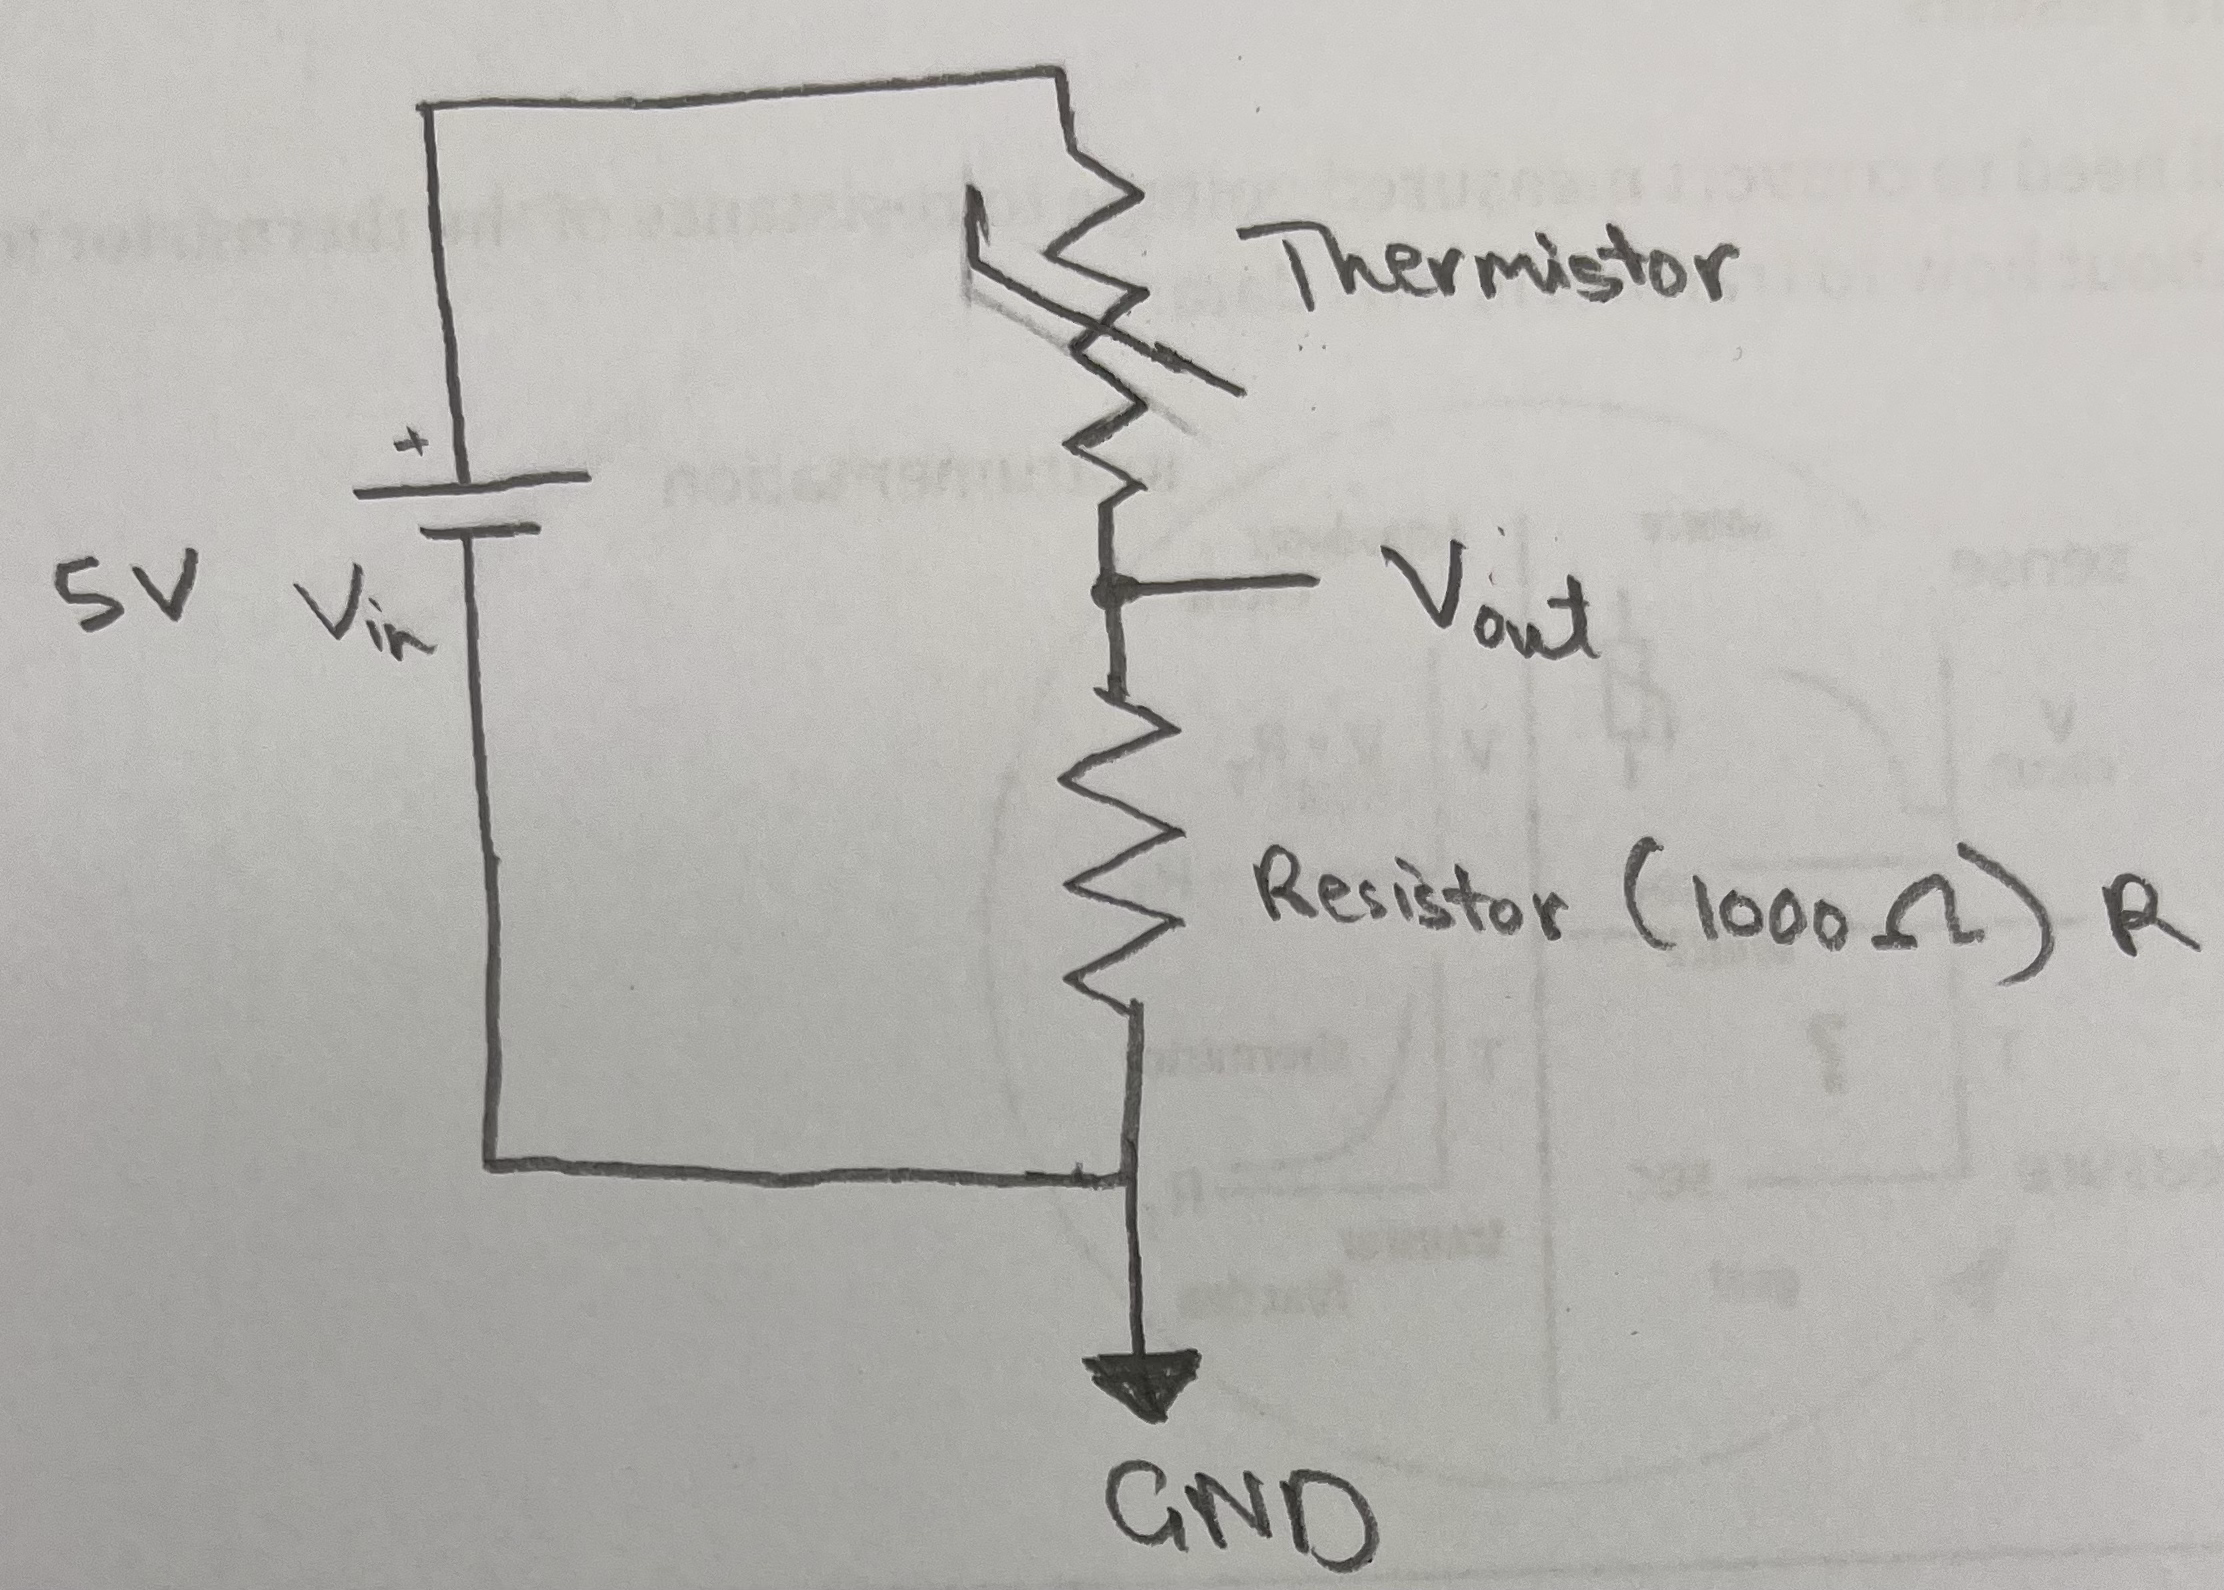 Thermistor
+
5V Vin
Vout
Resistor (1000 Ω) R
GND